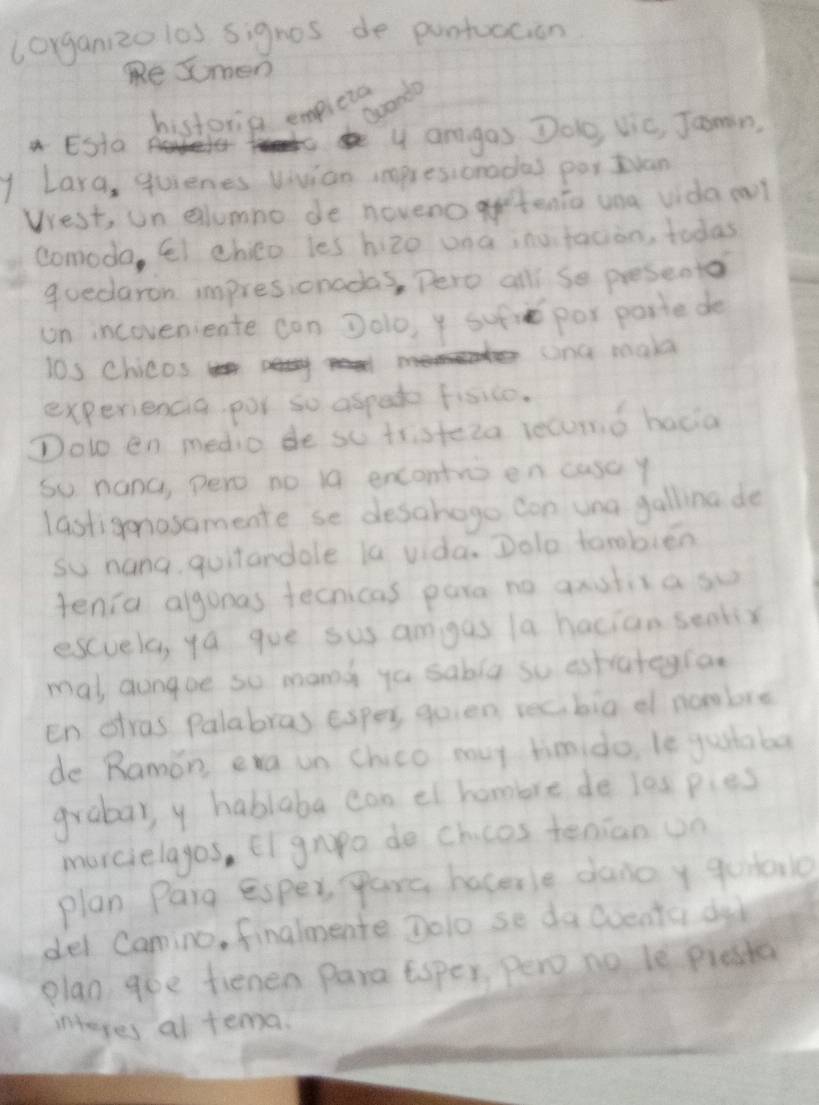 ¿organizo los signos de puntuación
Resumen
Esta historia empieza cuando 4 amigas Dolo, Vic, Jasmin,
y Lara, quienes vivian impresionadas por Ivan
Vrest, un alumno de noveno tenia una vida
comoda. El chico les hizo una invitación, todas
quedaron impresionadas. Pero alli se presento
un incoveniente con Dolo, y sufrio por parte de
los chicos una mala
experiencia por su aspecto fisico.
Dolo en medio de su tristeza recurrió hacia
su nana, pero no la encontro en casa y
lastigosamente se desahogo con una gallina de
su nana quitandole la vida. Dolo tambien
tenía algunas tecnicas para no asistir a su
escuela, ya que sus amigas la hacian sentir
mal, aunque su mamá ya sabia su estrategia.
En otras Palabras Esper, quien recibia el nombre
de Ramón, era un chico muy timido, le gustaba
grabar, y hablaba con el hombre de los pies
murcielagos. El grupo de chicos tenian un
plan Para Esper, para hacerle daño y quitarlo
del camino. finalmente Dolo se da cuenta del
plan que tienen Para Esper, pero no le presta
interes al tema.